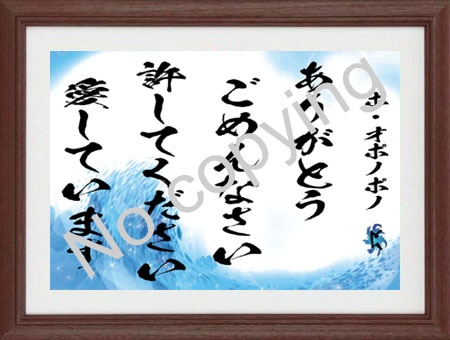 ホ・オポノポノ
ありがとう
ごめんなさい
許してください
愛しています
No copying